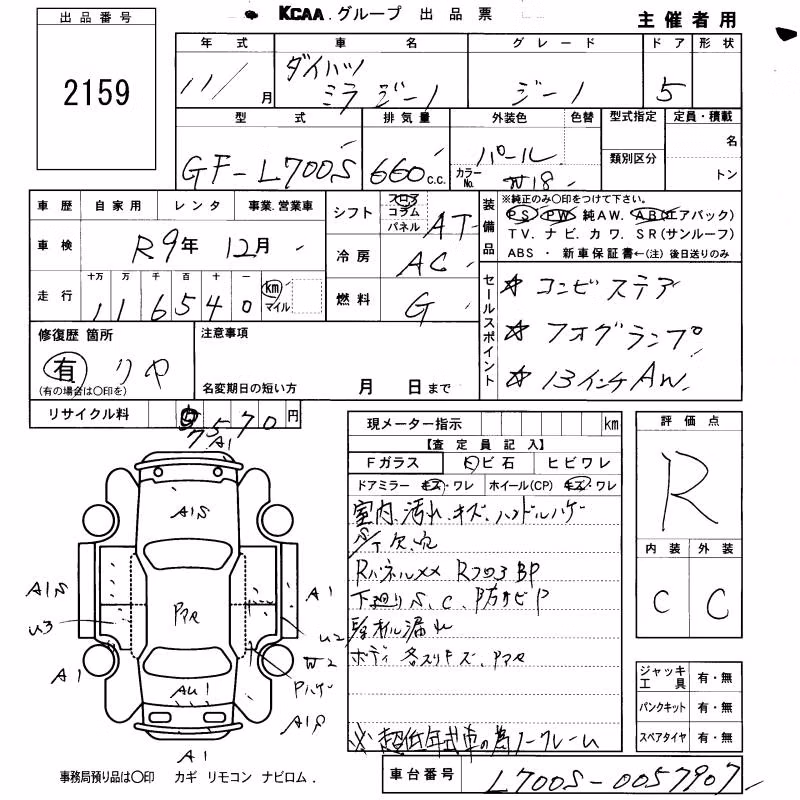 出品番号
2159
KCAA.グループ 出品票
主催者用
年式 車名 グレード ドア 形状
11/ 月 ダイハツ ミラ ジーノ ジーノ 5
型式 排気量 外装色 色替 型式指定 定員・積載
GF-L700S 660 c.c. パール カラーNo. W18 類別区分 名 トン
車歴 自家用 レンタ 事業.営業車
シフト フロア コラム パネル AT
装備品 ※純正のみ〇印をつけて下さい。
PS PW 純AW. AB(エアバック)
TV. ナビ. カワ. SR(サンルーフ)
ABS ・ 新車保証書←(注)後日送りのみ
車検 R9年 12月
冷房 AC
走行 十万 万 千 百 十 一
1 1 6 5 4 0 km マイル
燃料 G
セールスポイント
☆ コンビステア
☆ フオグランプ
☆ 13インチAW.
修復歴 箇所
有 リヤ
(有の場合は〇印を)
注意事項
名変期日の短い方 月 日まで
リサイクル料 7570円
現メーター指示 km
【査定員記入】
Fガラス トビ石 ヒビワレ
ドアミラー キズ・ワレ ホイール(CP) キズ・ワレ
室内.汚れ.キズ.ハンドルハゲ
S/T欠.穴
Rパネル×× Rフロア BP
下廻り S、C、防サビP
オイル漏れ
ボディ 各スリキズ、
※超低年式車の為ノークレーム
評価点
R
内装 外装
C C
ジャッキ工具 有・無
パンクキット 有・無
スペアタイヤ 有・無
A1
A1S
A1S
A1
U3
U2
W2
A1
Pハゲ
AU1
A1P
A1
事務局預り品は〇印 カギ リモコン ナビロム.
車台番号 L700S-0057907